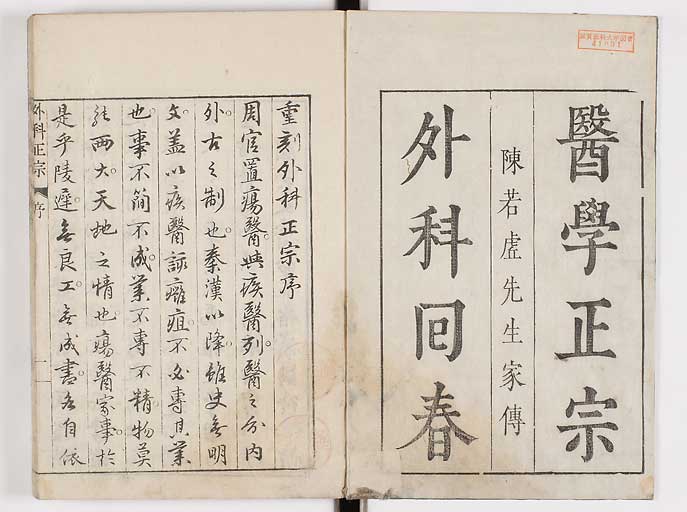 醫學正宗
陳若虛先生家傳
外科回春
重刻外科正宗序
周官置瘍醫與疾醫列醫之分內
外古之制也秦漢以降雖史無明
文蓋以疾醫診癰疽不必專其業
也事不簡不成業不專不精物莫
能兩大天地之情也瘍醫家事於
是乎陵遲無良工無成書各自依
外科正宗
序
一